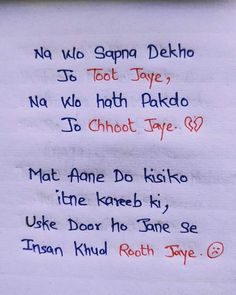 Na Wo Sapna Dekho
Jo Toot Jaye,
Na Wo hath Pakdo
Jo Chhoot Jaye. 💔
Mat Aane Do kisiko
itne kareeb ki,
Uske Door ho Jane se
Insan Khud Rooth Jaye. ☹